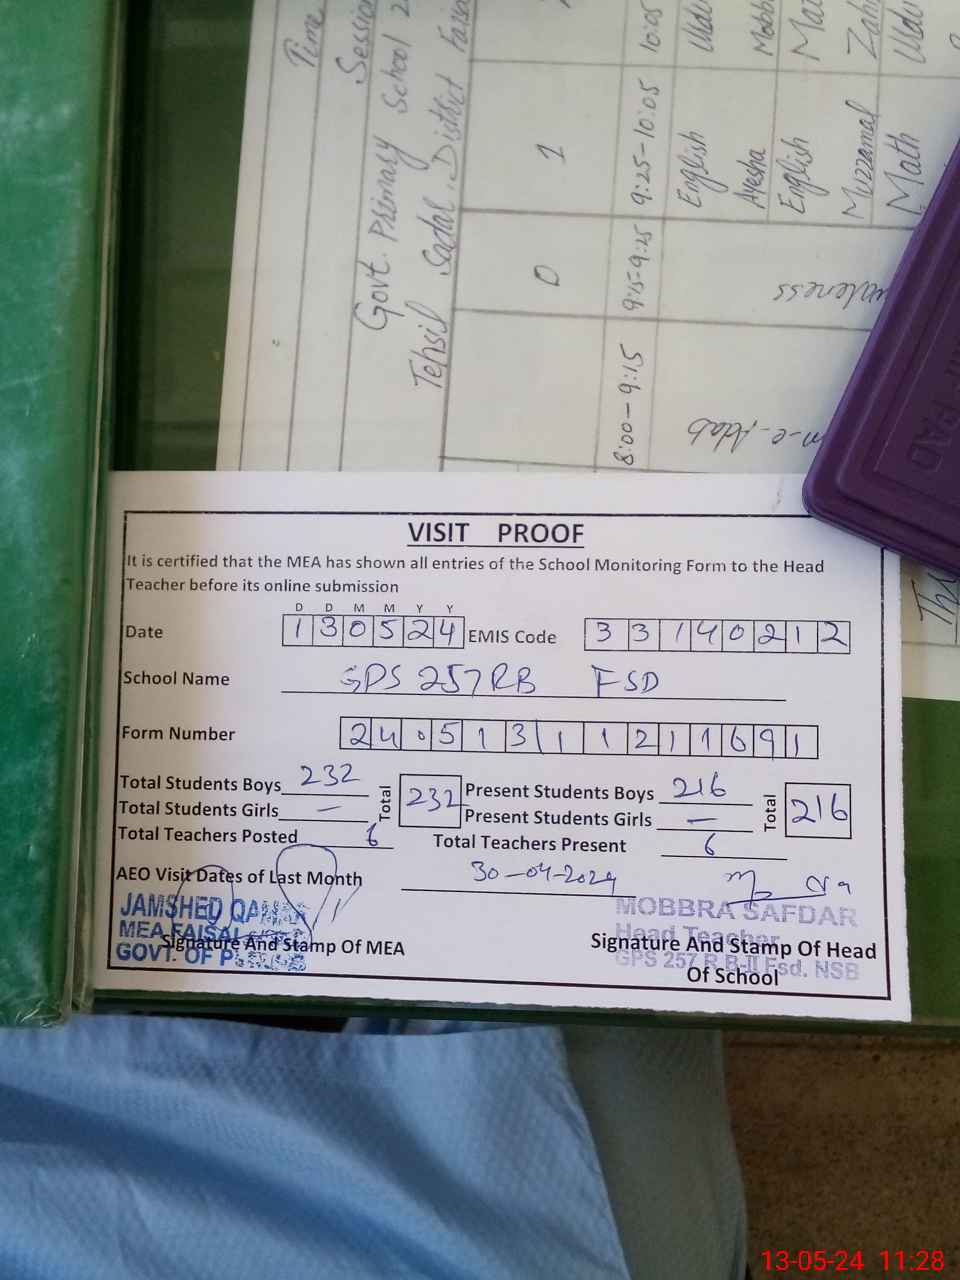 Time
Session
Govt. Primary School 2
Tehsil Sadar. District Faisa
0 1
8:00 - 9:15 9:15-9:25 9:25-10:05 10:05
English Urdu
Ayesha Mobb
English Mat
Muzzamal Zah
Math Urdu
PAD
VISIT PROOF
It is certified that the MEA has shown all entries of the School Monitoring Form to the Head
Teacher before its online submission
D D M M Y Y
Date 130524 EMIS Code 33140212
School Name GPS 257 RB FSD
Form Number 240513112111691
Total Students Boys 232 Total 232 Present Students Boys 216 Total 216
Total Students Girls — Present Students Girls —
Total Teachers Posted 6 Total Teachers Present 6
AEO Visit Dates of Last Month 30-04-2024
JAMSHED
MEA FAISAL
GOVT. OF
Signature And Stamp Of MEA
MOBBRA SAFDAR
Head Teacher
GPS 257 R.B-II Fsd. NSB
Signature And Stamp Of Head
Of School
13-05-24 11:28